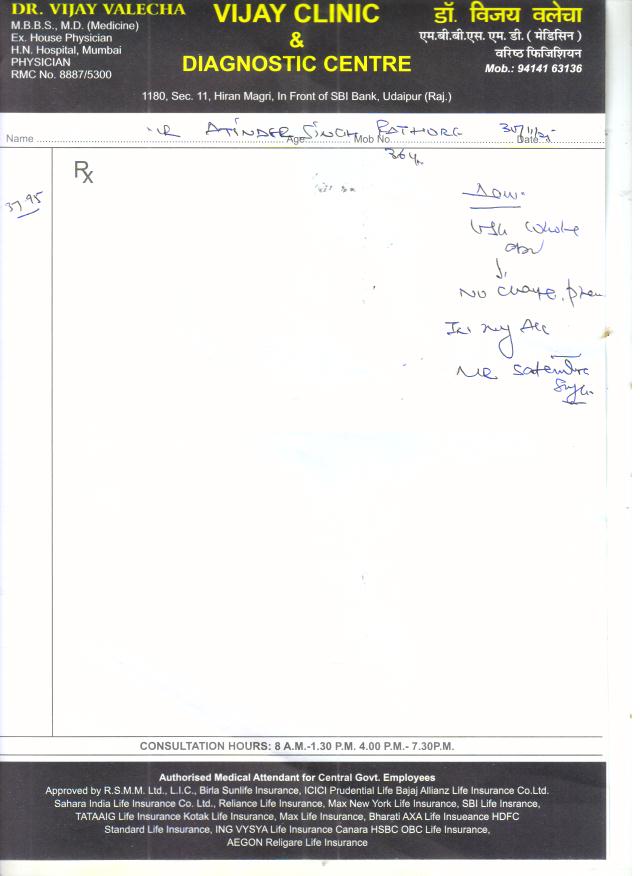 DR. VIJAY VALECHA
M.B.B.S., M.D. (Medicine)
Ex. House Physician
H.N. Hospital, Mumbai
PHYSICIAN
RMC No. 8887/5300
VIJAY CLINIC
&
DIAGNOSTIC CENTRE
डॉ. विजय वलेचा
एम.बी.बी.एस. एम. डी. ( मेडिसिन )
वरिष्ठ फिजिशियन
Mob.: 94141 63136
1180, Sec. 11, Hiran Magri, In Front of SBI Bank, Udaipur (Raj.)
Name MR ATINDER SINGH RATHORE Age Mob No. Date
36 y
Rx
3795
USG Whole
abd
No charge, please
In my A/c
MR Satendra
Singh
CONSULTATION HOURS: 8 A.M.-1.30 P.M. 4.00 P.M.- 7.30P.M.
Authorised Medical Attendant for Central Govt. Employees
Approved by R.S.M.M. Ltd., L.I.C., Birla Sunlife Insurance, ICICI Prudential Life Bajaj Allianz Life Insurance Co.Ltd.
Sahara India Life Insurance Co. Ltd., Reliance Life Insurance, Max New York Life Insurance, SBI Life Insrance,
TATAAIG Life Insurance Kotak Life Insurance, Max Life Insurance, Bharati AXA Life Insueance HDFC
Standard Life Insurance, ING VYSYA Life Insurance Canara HSBC OBC Life Insurance,
AEGON Religare Life Insurance